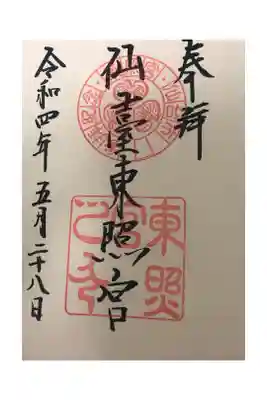 奉拝
仙臺東照宮
令和四年五月二十八日
東照宮